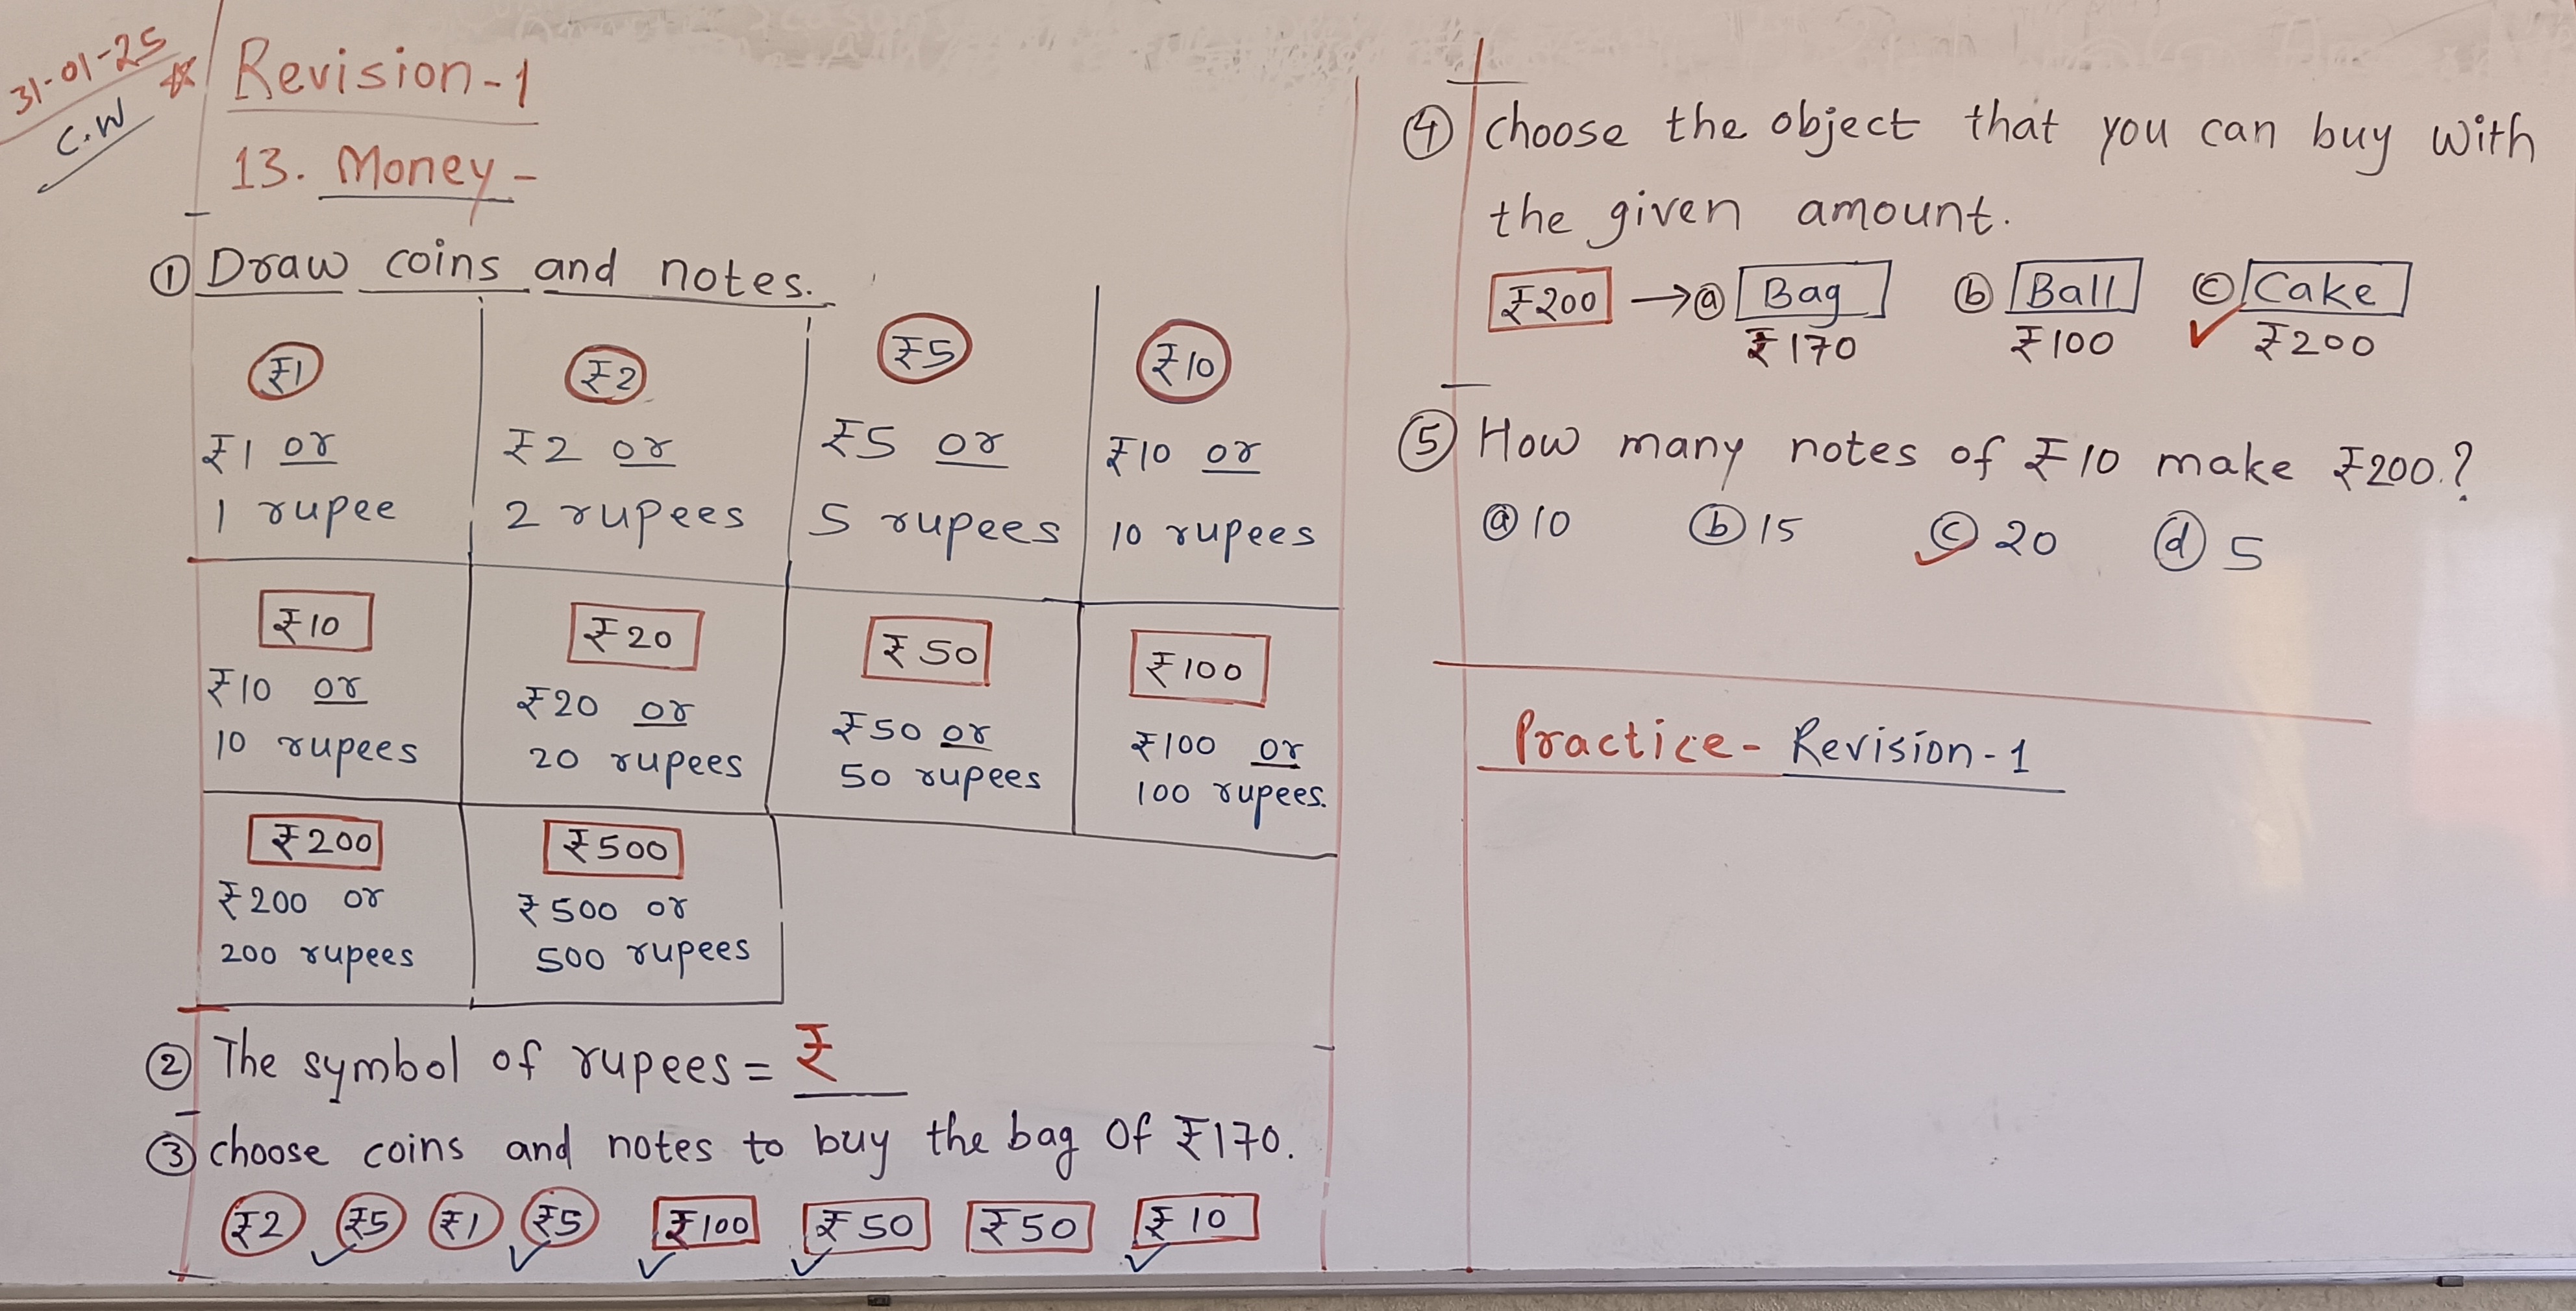 31-01-25
C.W
Revision-1
13. Money-
① Draw coins and notes.
₹1 ₹2 ₹5 ₹10
₹1 or ₹2 or ₹5 or ₹10 or
1 rupee 2 rupees 5 rupees 10 rupees
₹10 ₹20 ₹50 ₹100
₹10 or ₹20 or ₹50 or ₹100 or
10 rupees 20 rupees 50 rupees 100 rupees.
₹200 ₹500
₹200 or ₹500 or
200 rupees 500 rupees
② The symbol of rupees = ₹
③ choose coins and notes to buy the bag of ₹170.
₹2 ₹5 ₹1 ₹5 ₹100 ₹50 ₹50 ₹10
④ choose the object that you can buy with
the given amount.
₹200 → ⓐ Bag ⓑ Ball ⓒ Cake
₹170 ₹100 ₹200
⑤ How many notes of ₹10 make ₹200.?
ⓐ 10 ⓑ 15 ⓒ 20 ⓓ 5
Practice- Revision-1